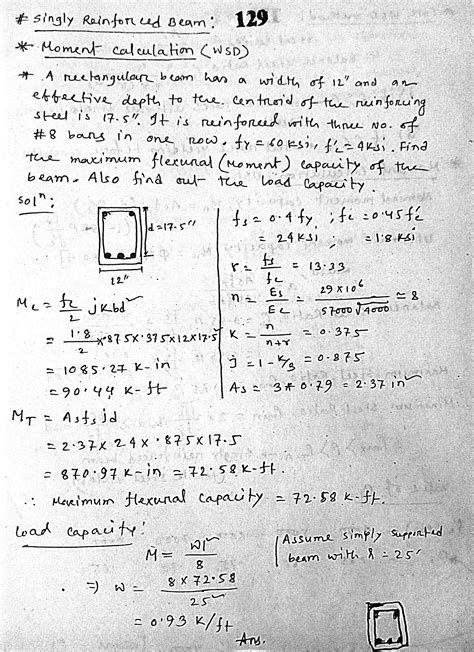 # Singly Reinforced Beam: 129
* Moment calculation (WSD)
* A rectangular beam has a width of 12" and an
effective depth to the centroid of the reinforcing
steel is 17.5". It is reinforced with three No. of
#8 bars in one row. fy = 60 ksi, f'c = 4 ksi. Find
the maximum flexural (Moment) capacity of the
beam. Also find out the load capacity.
Solⁿ:
d=17.5"
12"
fs = 0.4 fy ; fc = 0.45 f'c
= 24 ksi ; = 1.8 ksi
r = fs/fc = 13.33
n = Es/Ec = 29×10⁶/57000√4000 ≈ 8
k = n/n+r = 0.375
j = 1 - k/3 = 0.875
As = 3*0.79 = 2.37 in²
Mc = fc/2 jkbd²
= 1.8/2 × .875 × .375 × 12 × 17.5²
= 1085.27 k-in
= 90.44 k-ft
MT = As fs jd
= 2.37 × 24 × .875 × 17.5
= 870.97 k-in = 72.58 k-ft.
∴ Maximum flexural capacity = 72.58 k-ft.
Load capacity:
M = wl²/8
⇒ w = 8 × 72.58/25²
= 0.93 k/ft
Ans.
Assume simply supported
beam with l = 25'